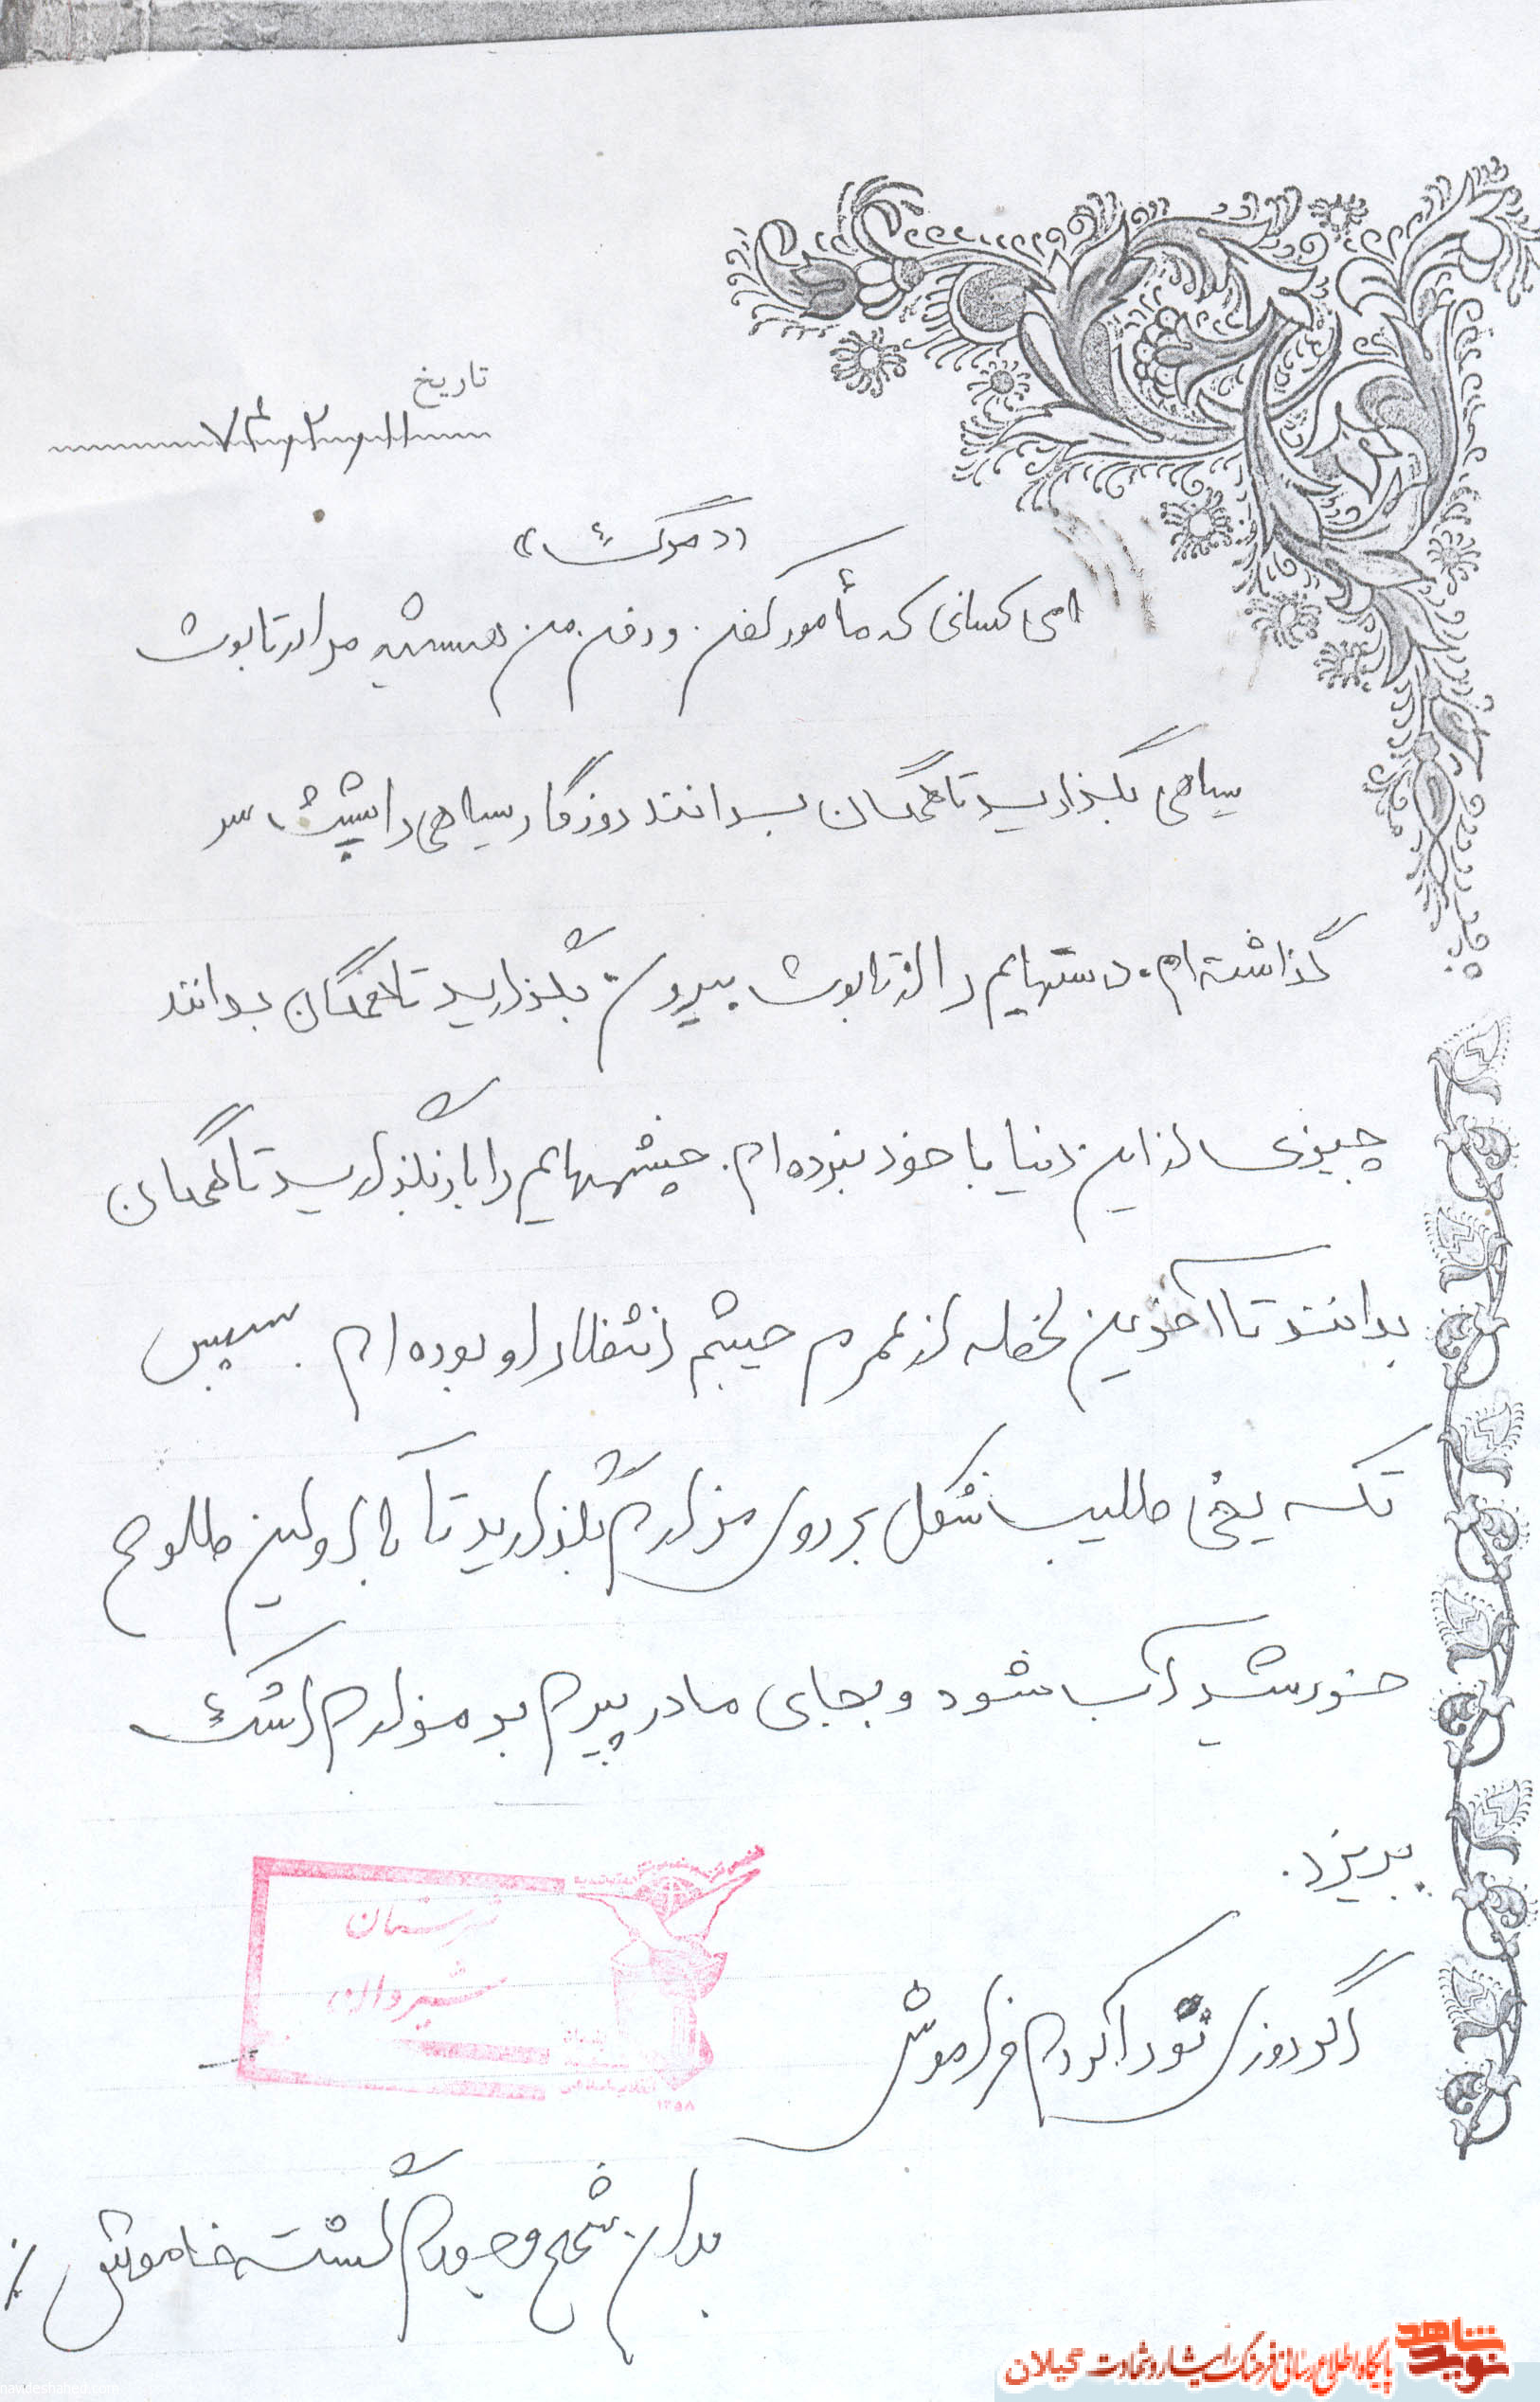 تاریخ
۷۴ر۲ر۱۱
«مرگ»
ای کسانی که مأمور کفن و دفن من هستید مرا در تابوت
سیاهی بگذارید تا همگان بدانند روزگار سیاهی را پشت سر
گذاشته‌ام. دستهایم را از تابوت بیرون بگذارید تا همگان بدانند
چیزی از این دنیا با خود نبرده‌ام. چشمهایم را باز بگذارید تا همگان
بدانند تا آخرین لحظه از عمرم چشم انتظار او بوده‌ام. سپس
تکه یخی صلیب شکل بر روی مزارم بگذارید تا با اولین طلوع
خورشید آب شود و بجای مادر پیرم بر مزارم اشک
بریزد.
اگر روزی تو را کردم فراموش
بدان شمع وجودم گشته خاموش ٪
شهرستان
شیروان
انقلاب اسلامی
۱۳۵۸
نوید شاهد
پایگاه اطلاع رسانی فرهنگ ایثار و شهادت گیلان
navideshahed.com